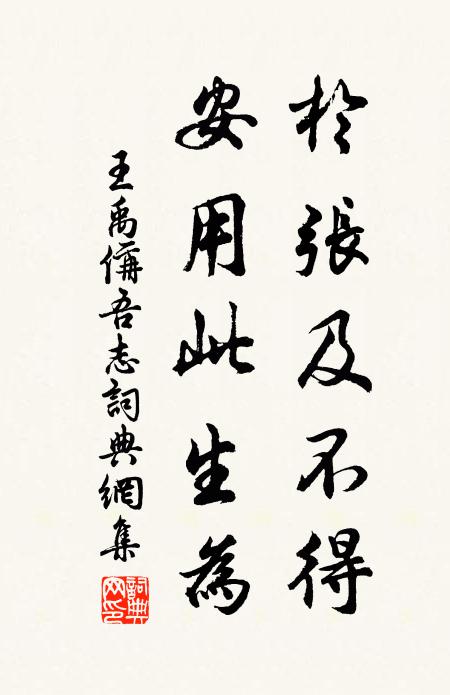 於張及不得
安用此生為
王禹偁吾志詞典網集
詞典
网印